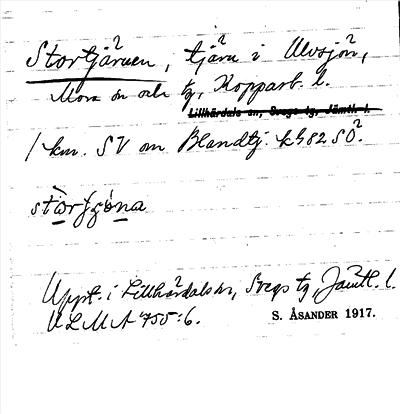 Stortjärnen, tjärn i Älvsjön,
Mora sn och tg, Kopparb. l.
Lillhärdals sn, Svegs tg, Jämtl. l.
1 km. SV om Blandtj. kh 82 SÖ.
Uppt. i Lillhärdals sn, Svegs tg, Jämtl. l.
ULMA 755:6.
S. ÅSANDER 1917.